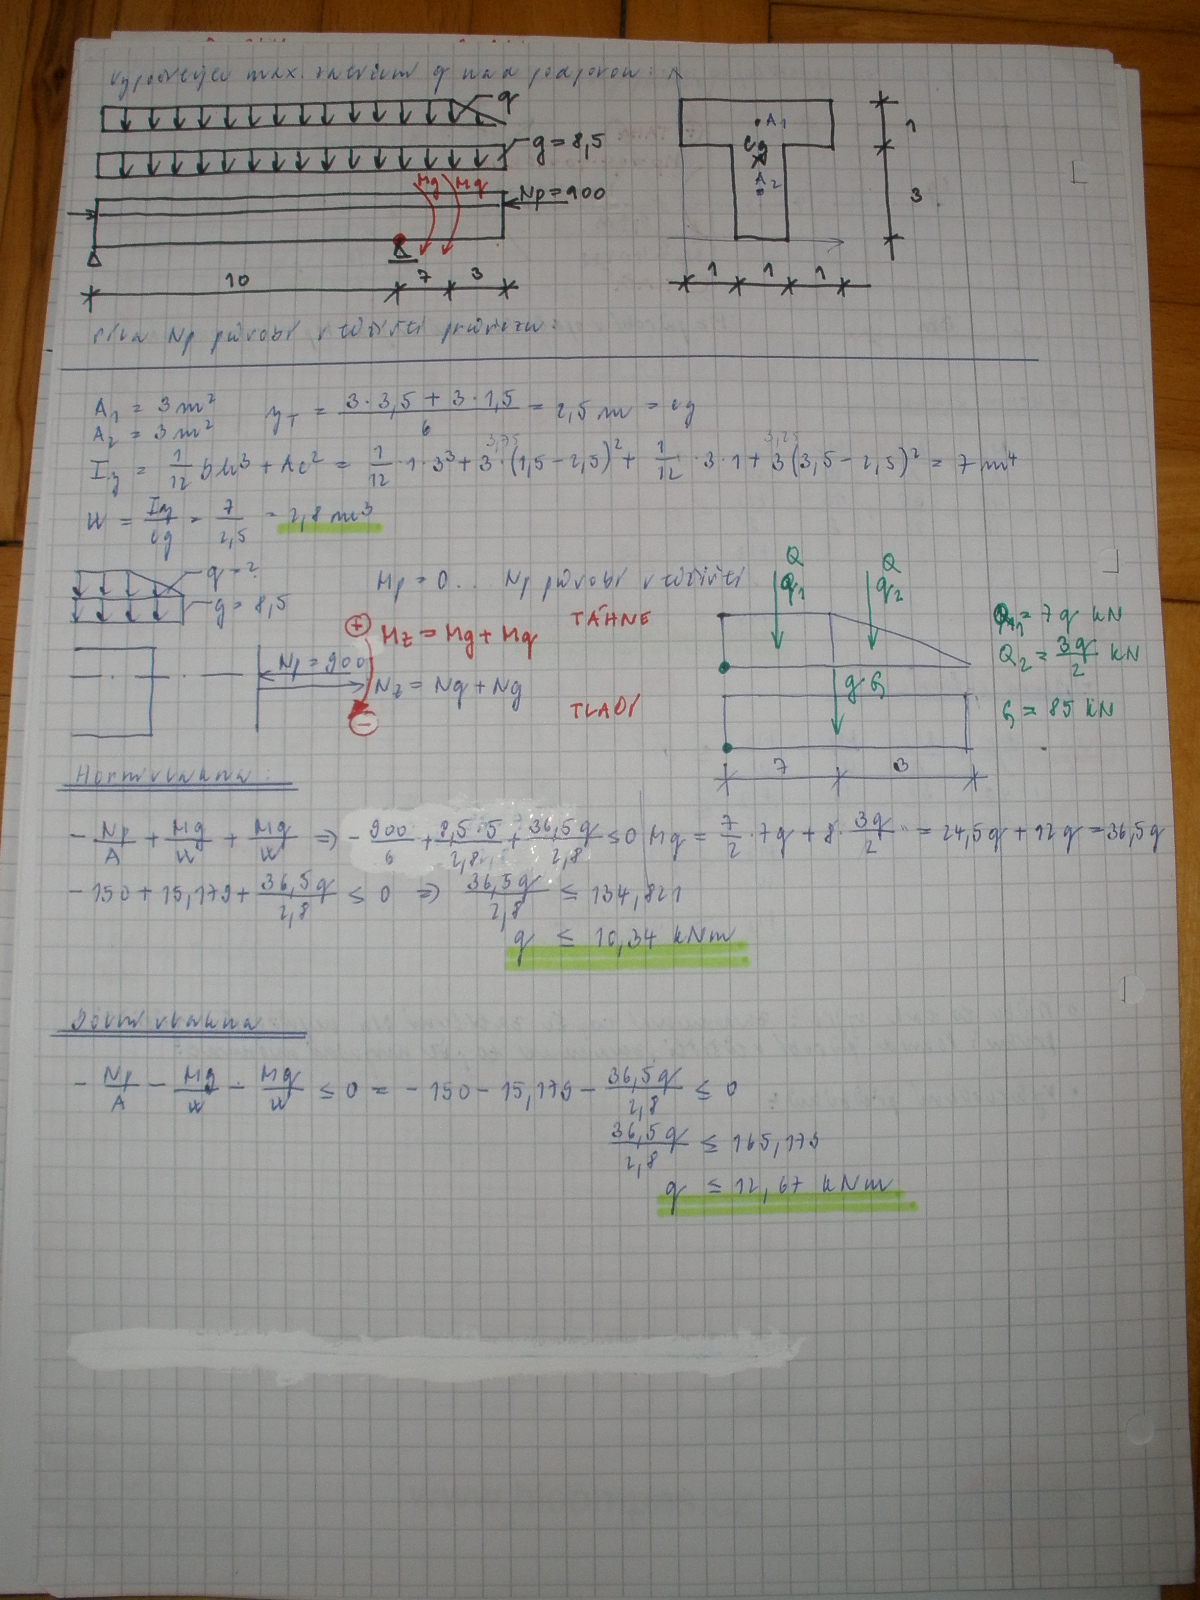 vypočítejte max. zatížení q nad podporou:
q
g = 8,5
Mg Mq
Np = 900
10 7 3
A1
cg
A2
1
3
1 1 1
síla Np působí v těžišti průřezu:
A1 = 3 m²
A2 = 3 m²
yT = (3·3,5 + 3·1,5)/6 = 2,5 m = cg
3,75 3,25
Iy = 1/12 bh³ + Ac² = 1/12 · 1·3³ + 3·(1,5 − 2,5)² + 1/12 · 3·1 + 3(3,5 − 2,5)² = 7 m⁴
W = Iy/cg = 7/2,5 = 2,8 m³
q = ?
g = 8,5
Mp = 0... Np působí v těžišti
TÁHNE
+ Mz = Mg + Mq
Np = 900
Nz = Nq + Ng
TLAČÍ
−
Q Q
q1 q2
g G
7 3
Q1 = 7q kN
Q2 = 3q/2 kN
G = 85 kN
Horní vlákna:
− Np/A + Mg/W + Mq/W ⇒ − 900/6 + 8,5·5/2,8 + 36,5q/2,8 ≤ 0
Mq = 7/2 · 7q + 8 · 3q/2 = 24,5q + 12q = 36,5q
−150 + 15,179 + 36,5q/2,8 ≤ 0 ⇒ 36,5q/2,8 ≤ 134,821
q ≤ 10,34 kNm
Dolní vlákna
− Np/A − Mg/W − Mq/W ≤ 0 = −150 − 15,179 − 36,5q/2,8 ≤ 0
36,5q/2,8 ≤ 165,179
q ≤ 12,67 kNm